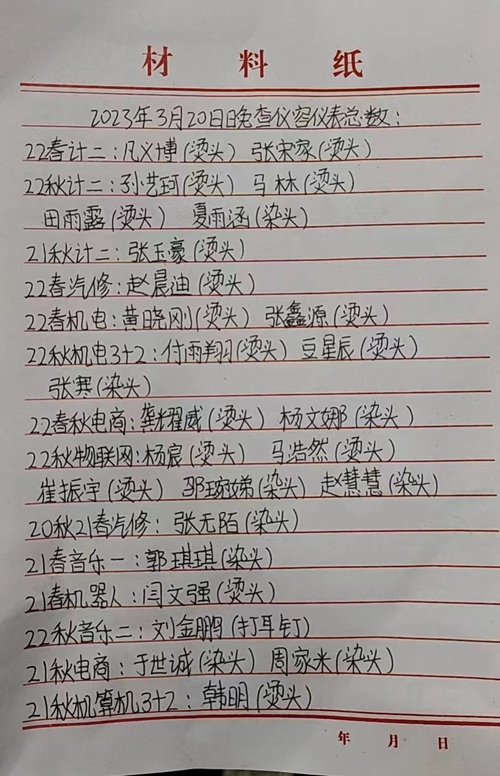 材料纸
2023年3月20日晚查仪容仪表总数:
22春计二:凡义博(烫头) 张宋家(烫头)
22秋计二:孙艺珂(烫头) 马林(烫头)
田雨露(烫头) 夏雨涵(染头)
21秋计二:张玉豪(烫头)
22春汽修:赵晨迪(烫头)
22春机电:黄晓刚(烫头) 张鑫源(烫头)
22秋机电3+2:付雨翔(烫头) 豆星辰(烫头)
张寒(染头)
22春秋电商:龚耀威(烫头) 杨文娜(染头)
22秋物联网:杨宸(烫头) 马浩然(烫头)
崔振宇(烫头) 邹琬娣(染头) 赵慧慧(染头)
20秋21春汽修:张无陌(染头)
21春音乐一:郭琪琪(染头)
21春机器人:闫文强(烫头)
22秋音乐二:刘金鹏(打耳钉)
21秋电商:于世诚(染头) 周家米(染头)
21秋机算机3+2:韩明(烫头)
年 月 日